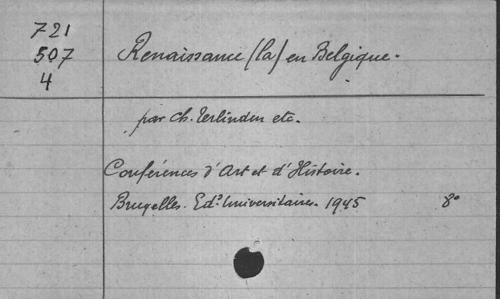 721
507
4
Renaissance (la) en Belgique.
par Ch. Terlinden etc.
Conférences d'Art et d'Histoire.
Bruxelles. Edº Universitaires. 1945 8º